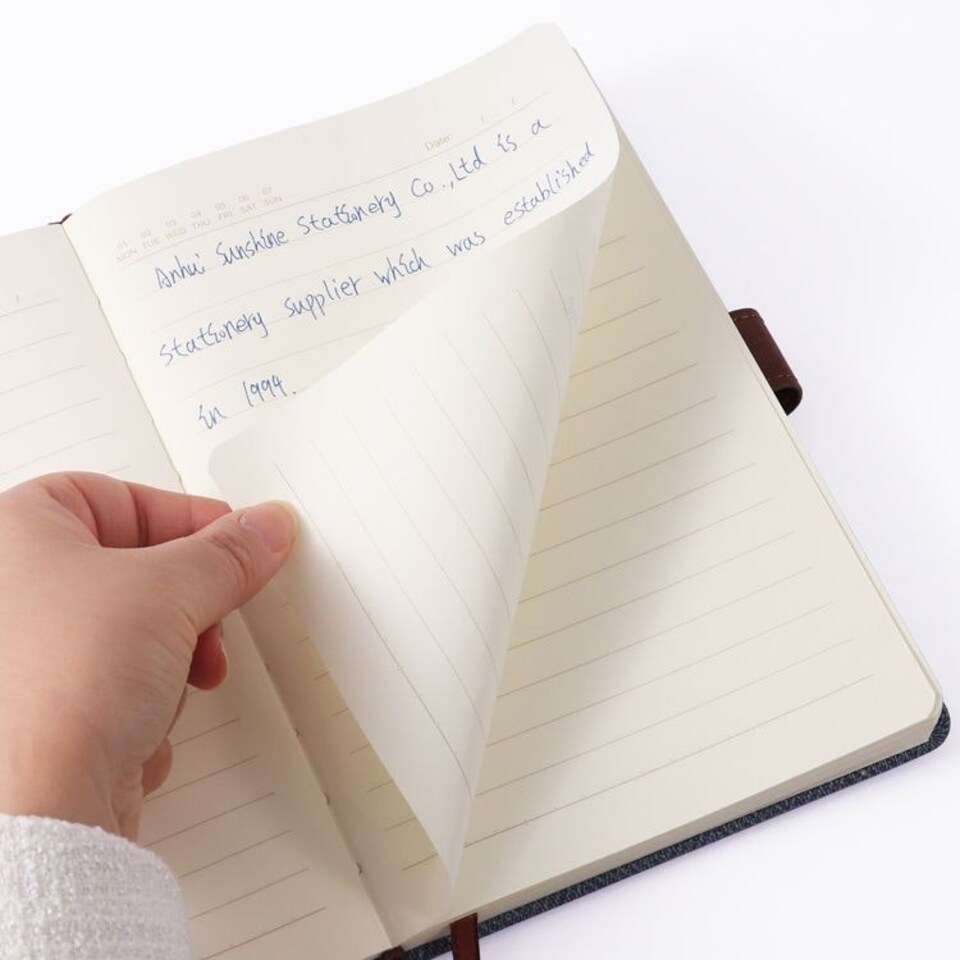 Date: / /
01 02 03 04 05 06 07
MON TUE WED THU FRI SAT SUN
Anhui Sunshine Stationery Co.,Ltd is a
stationery supplier which was established
in 1994.